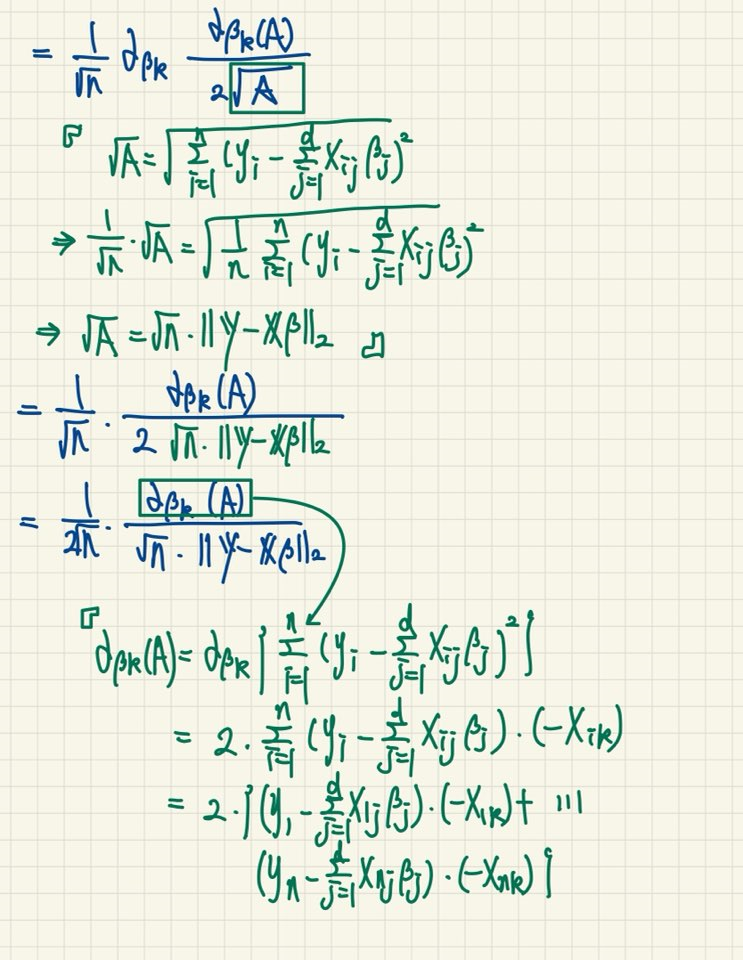 = 1/√n ∂βk ∂βk(A)/2√A
「 √A = √∑_{i=1}^{n} (yi − ∑_{j=1}^{d} Xij βj)²
⇒ 1/√n · √A = √1/n ∑_{i=1}^{n} (yi − ∑_{j=1}^{d} Xij βj)²
⇒ √A = √n · ||𝕐 − 𝕏β||₂ 」
= 1/√n · ∂βk(A)/2 √n · ||𝕐 − 𝕏β||₂
= 1/2√n · ∂βk(A)/√n · ||𝕐 − 𝕏β||₂
「 ∂βk(A) = ∂βk { ∑_{i=1}^{n} (yi − ∑_{j=1}^{d} Xij βj)² }
= 2 · ∑_{i=1}^{n} (yi − ∑_{j=1}^{d} Xij βj) · (−Xik)
= 2 · { (y1 − ∑_{j=1}^{d} X1j βj) · (−X1k) + ···
(yn − ∑_{j=1}^{d} Xnj βj) · (−Xnk) }